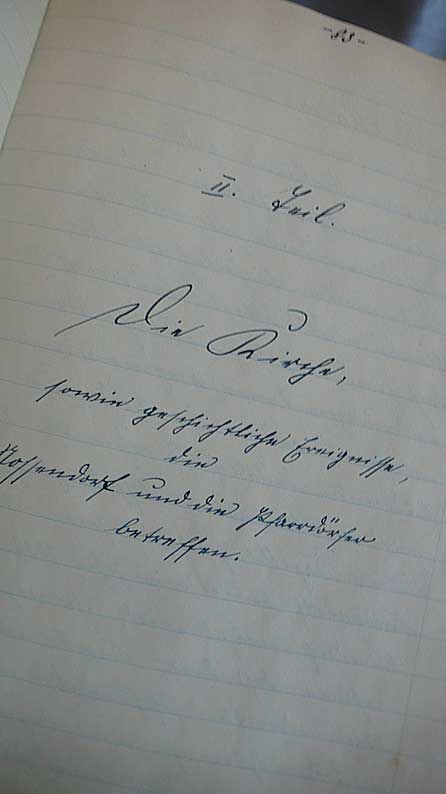 - 83 -
II. Teil.
Die Kirche,
sowie geschichtliche Ereignisse,
die
Possendorf und die Pfarrdörfer
betreffen.